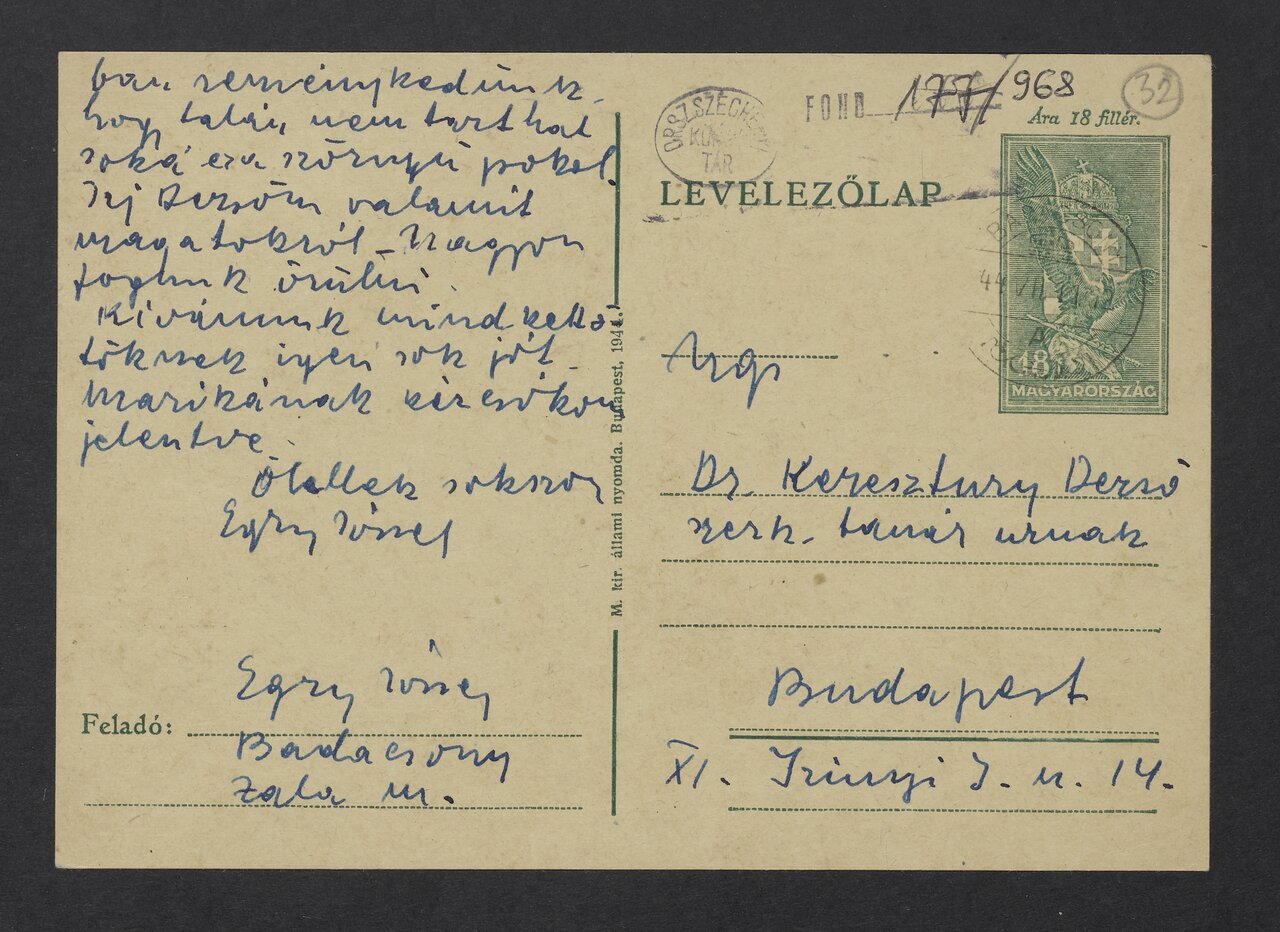 ban reménykedünk,
hogy talán nem tarthat
soká ez a szörnyű pokol.
Írj Dezsőm valamit
magatokról – Nagyon
fogunk örülni.
Kívánunk mindkettő-
töknek igen sok jót
Marikának kézcsókom
jelentve.
Ölellek sokszor
Egry József
Egry József
Feladó:
Badacsony
Zala m.
M. kir. állami nyomda. Budapest, 1944.
ORSZ. SZÉCHÉNYI
KÖNYV
TÁR
FOND
177/968
32
Ára 18 fillér.
LEVELEZŐLAP
44 VII
A
18
MAGYARORSZÁG
Ngs
Dr. Keresztury Dezső
szerk. tanár urnak
Budapest
XI. Irinyi J. u. 14.